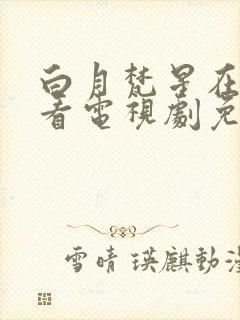 白月梵星在
看電視劇免
雪晴 瑛麒動漫